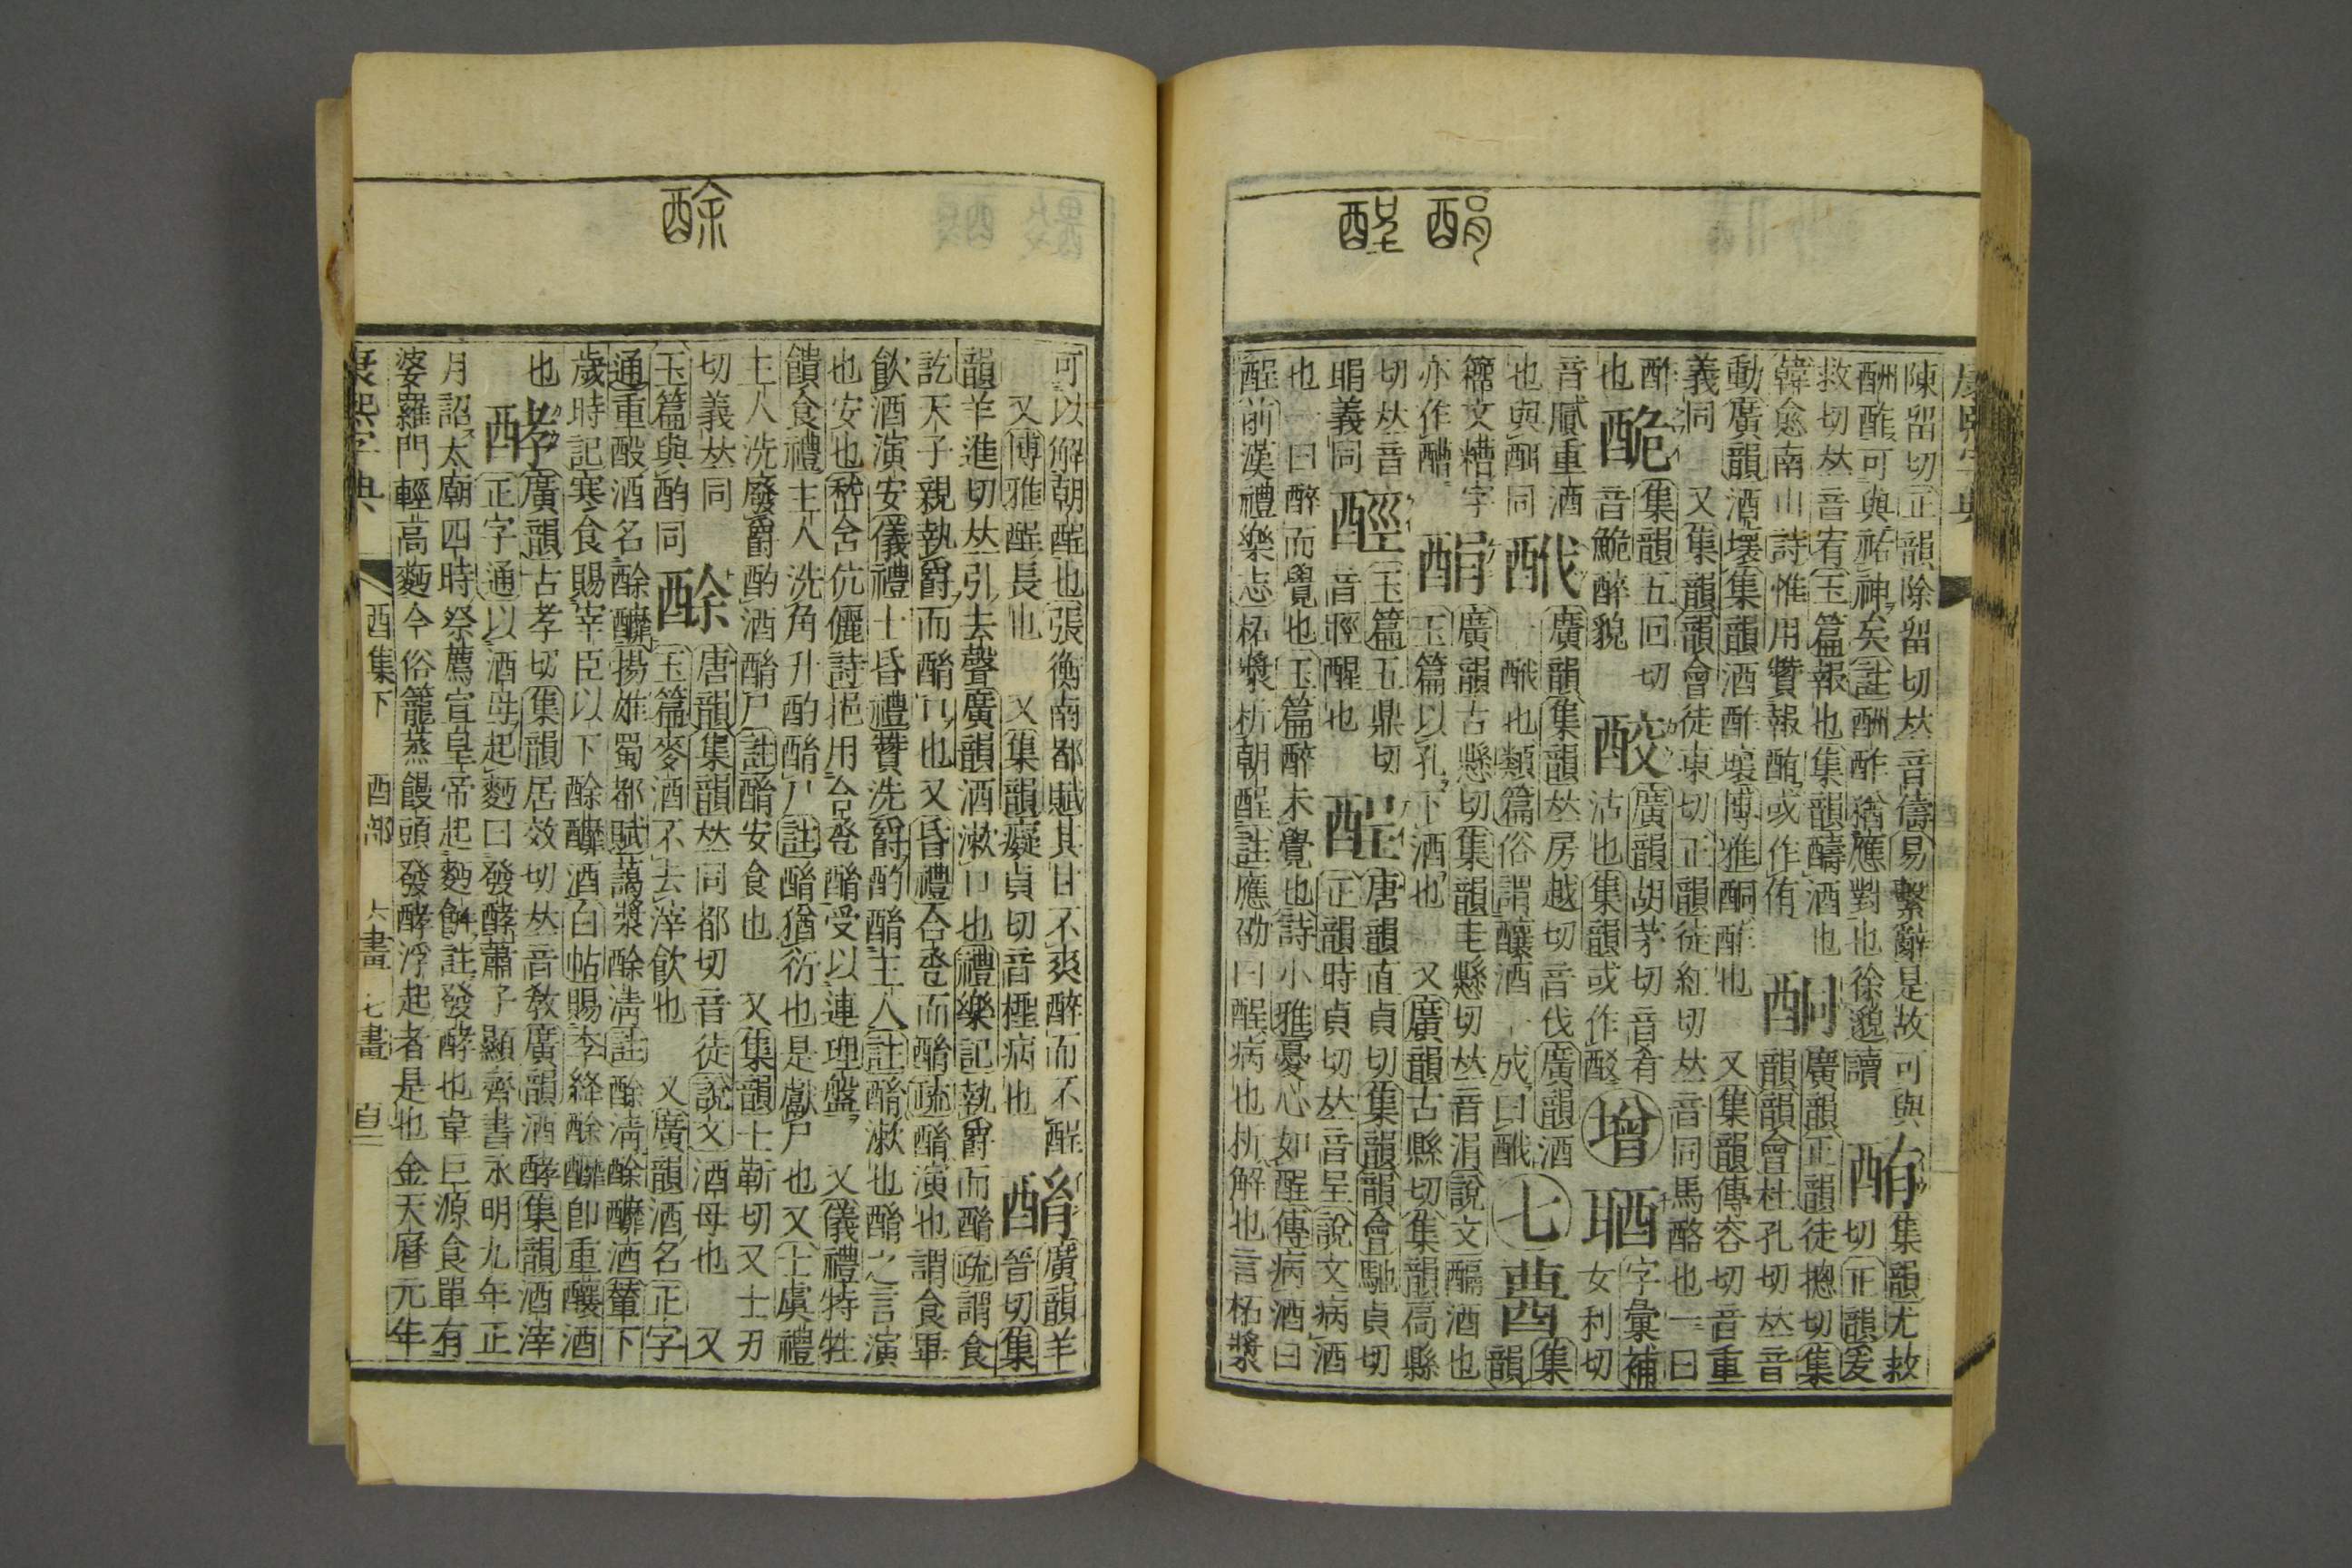 酲 ⿰酉肙
康熙字典
陳留切正韻除留切𠀤音儔易繫辭是故可與
酬酢可與祐神矣註酬酢猶應對也徐邈讀
酭
集韻尤救
切正韻爰
救切𠀤音宥玉篇報也集韻醻酒也
韓愈南山詩惟用贊報酭或作侑
酮
廣韻正韻徒摠切集
韻韻會杜孔切𠀤音
動廣韻酒壞集韻酒酢壞博雅酮酢也 又集韻傳容切音重
義同 又集韻韻會徒東切正韻徒紅切𠀤音同馬酪也一曰
酢
也
⿰酉危
集韻五回切
音鮠醉貌
⿰酉交
廣韻胡茅切音肴
沽也集韻或作
增
⿰耳酉
字彙補
女利切
音膩重酒
也與同
⿰酉伐
廣韻集韻𠀤房越切音伐廣韻酒
一⿰酉伐也類篇俗謂釀酒一成曰⿰酉伐
七
集
韻
籀文糟字
亦作醩
⿰酉肙
廣韻古懸切集韻圭懸切𠀤音涓說文醨酒也
玉篇以孔下酒也 又廣韻古縣切集韻扃縣
切𠀤音
睊義同
⿰酉巠
玉篇五鼎切
音脛醒也
酲
唐韻直貞切集韻韻會馳貞切
正韻時貞切𠀤音呈說文病酒
也一曰醉而覺也玉篇醉未覺也詩小雅憂心如酲傳病酒曰
酲前漢禮樂志柘漿析朝酲註應劭曰酲病也析解也言柘漿
酴
可以解朝酲也張衡南都賦其甘不爽醉而不酲
又博雅酲長也 又集韻癡貞切音檉病也
酳
廣韻羊
晉切集
韻羊進切𠀤引去聲廣韻酒漱口也禮樂記執爵而酳疏謂食
訖天子親執爵而酳口也又昏禮合巹而酳疏酳演也謂食畢
飲酒演安儀禮士昏禮贊洗爵酌酳主人註酳漱也酳之言演
也安也嵇含伉儷詩挹用合巹酳受以連理盤 又儀禮特牲
饋食禮主人洗角升酌酳尸註酳猶衍也是獻尸也又士虞禮
主人洗廢爵酌酒酳尸註酳安食也 又集韻士靳切又士刃
切義𠀤同
玉篇與酌同
酴
唐韻集韻𠀤同都切音徒說文酒母也 又
玉篇麥酒不去滓飮也 又廣韻酒名正字
通重酘酒名酴醾揚雄蜀都賦藹漿酴淸註酴淸酴醾酒輦下
歲時記寒食賜宰臣以下酴醾酒白帖賜李絳酴醾卽重釀酒
也
酵
廣韻古孝切集韻居效切𠀤音敎廣韻酒酵集韻酒滓
正字通以酒母起麪曰發酵蕭子顯齊書永明九年正
月詔太廟四時祭薦宣皇帝起麪餅註發酵也韋巨源食單有
婆羅門輕高麪今俗籠蒸饅頭發酵浮起者是也金天曆元年
康熙字典 酉集下 酉部 六畫 七畫